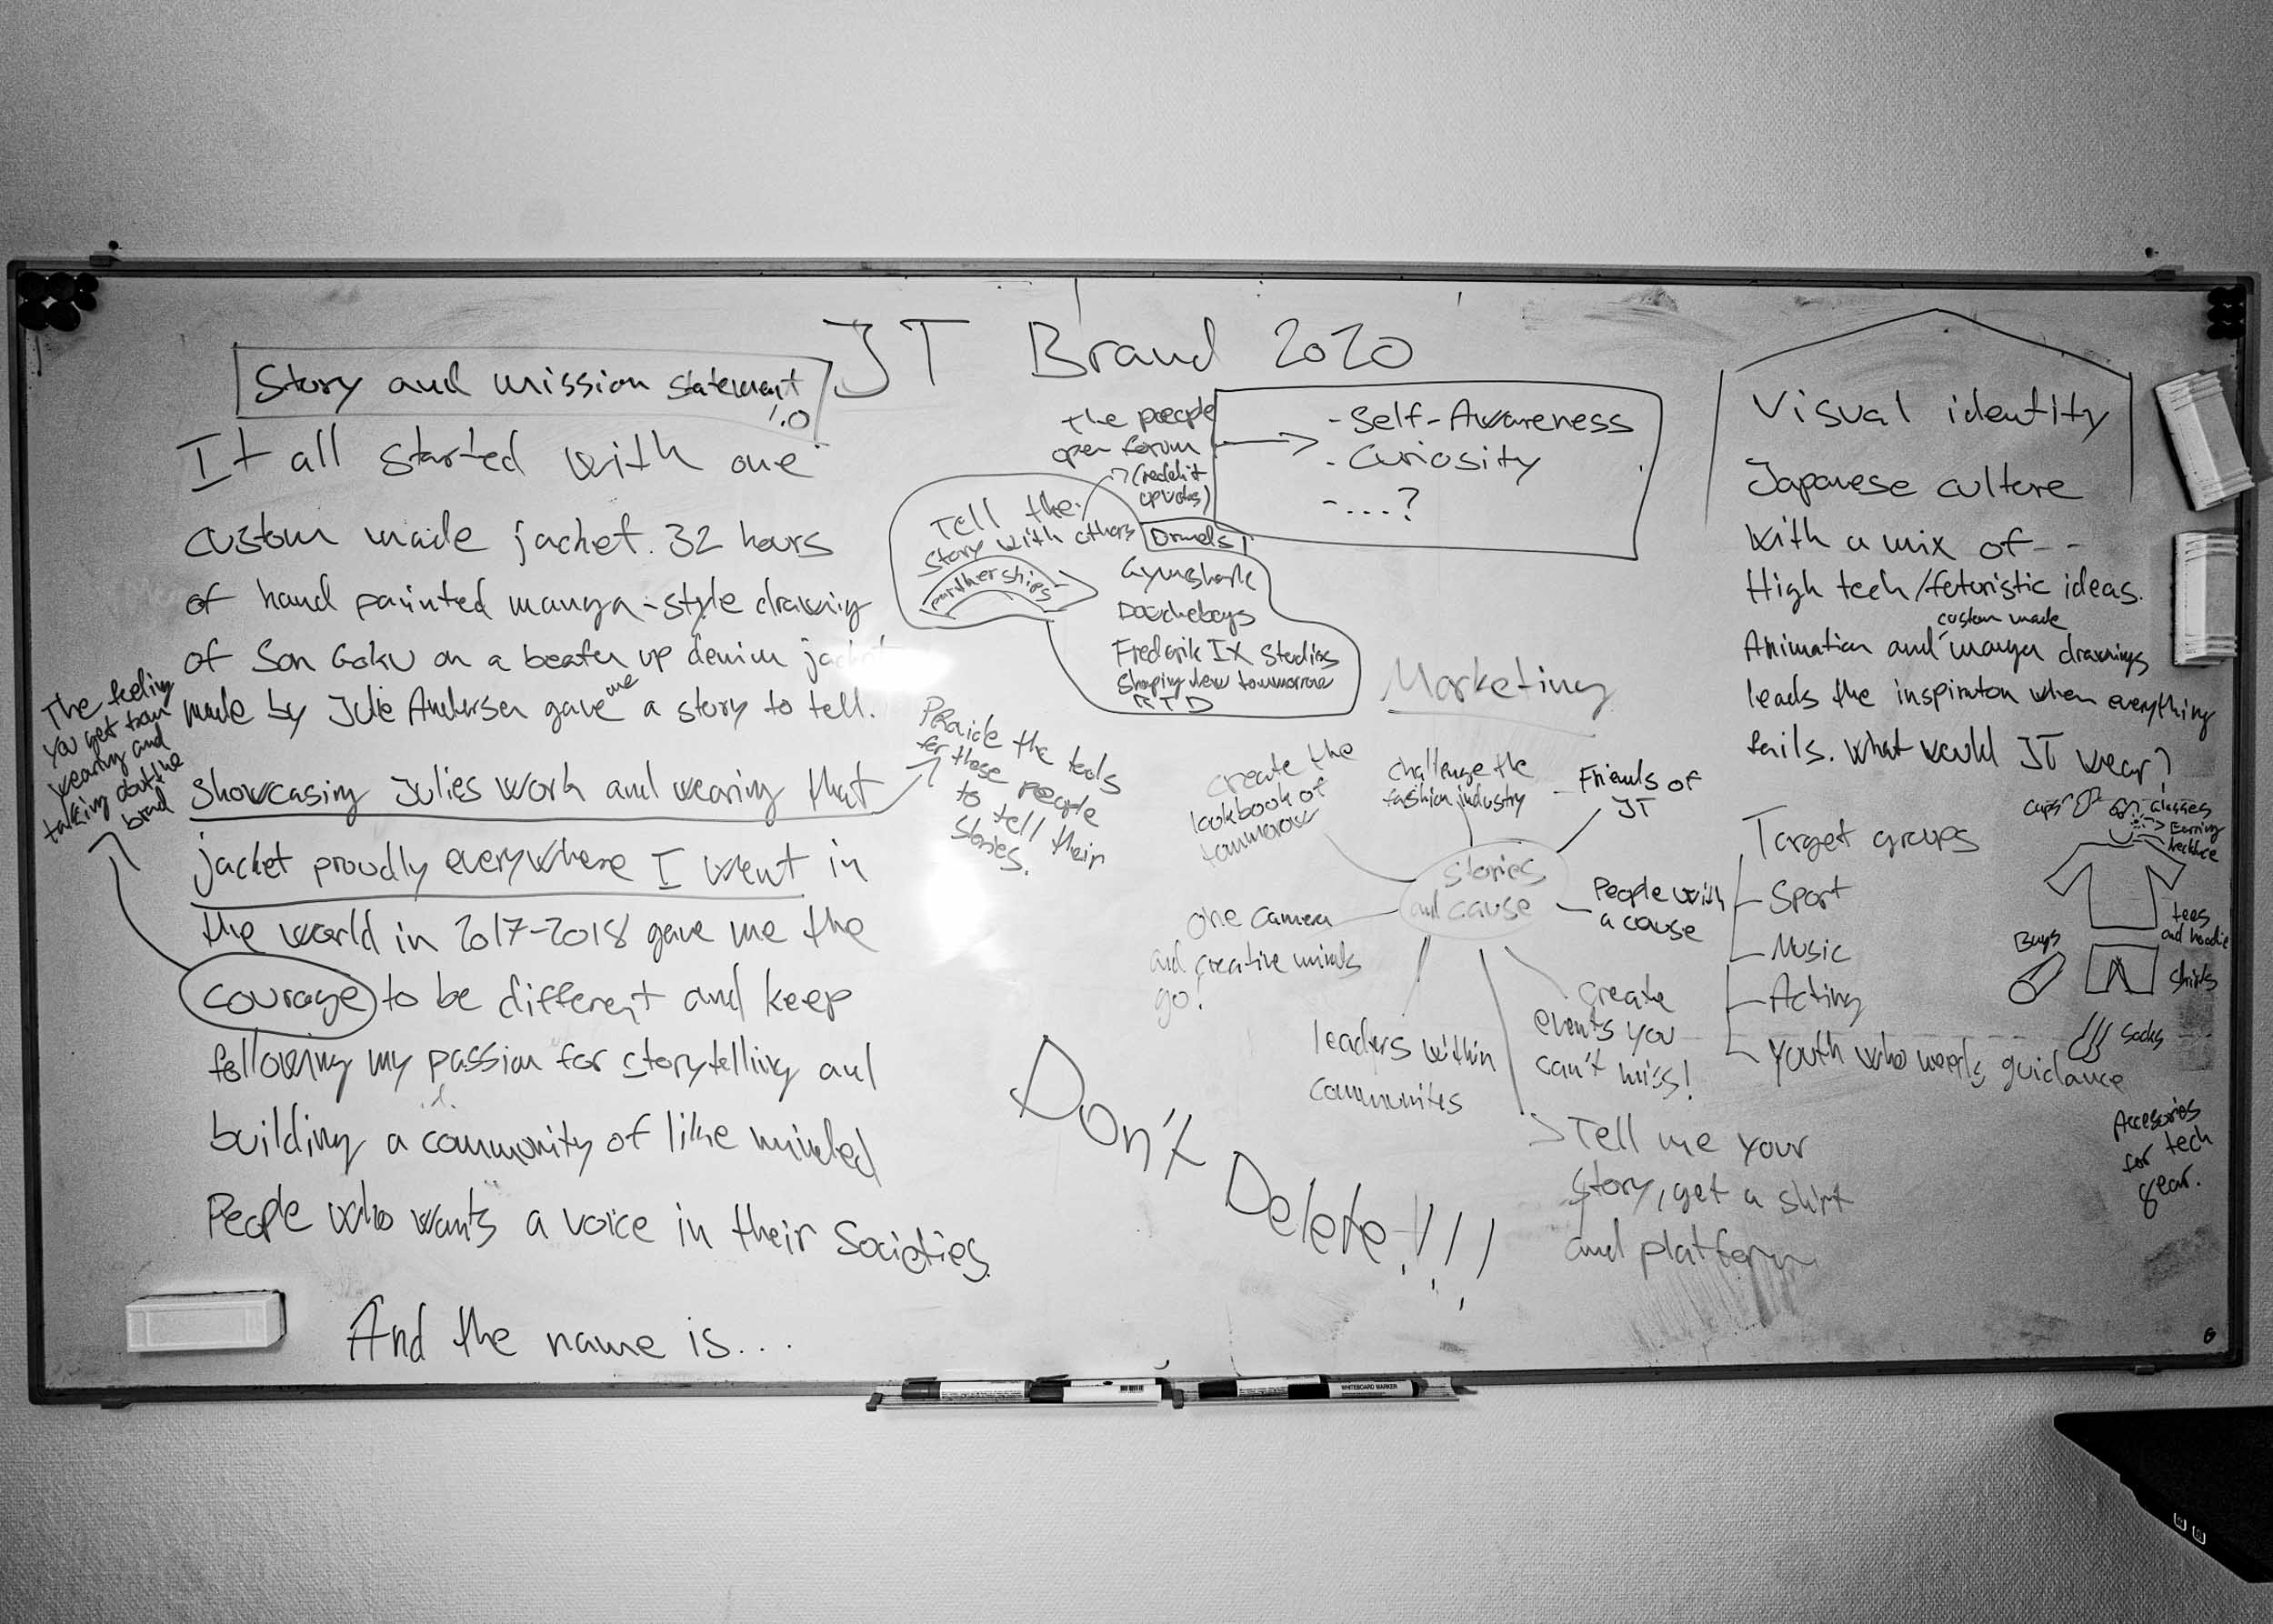 JT Brand 2020
Story and mission statement
1.0
It all started with one
custom made jacket. 32 hours
of hand painted manga-style drawing
of Son Goku on a beaten up denim
made by Julie Andersen gave me a story to tell.
showcasing Julies work and wearing that
jacket proudly everywhere I went in
the world in 2017-2018 gave me the
courage to be different and keep
following my passion for storytelling and
building a community of like minded
People who wants a voice in their Societies.
And the name is...
The feeling
you get from
wearing and
talking about the
brand
the people
open forum
(reddit
Tell the
story with others
partnerships
Gymshark
Frederik IX Studios
Shaping New tomorrow
- Self-Awareness
- Curiosity
- ...?
the tools
for those people
to tell their
Stories.
Marketing
stories
and cause
create the
lookbook of
tomorrow
challenge the
fashion industry
Friends of
JT
People with
a cause
one camera
and creative minds
go!
leaders within
communities
create
events you
can't miss!
Tell me your
story, get a shirt
and platform
Don't Delete!!!
Visual identity
Japanese culture
with a mix of--
High tech/futuristic ideas.
custom made
Animation and manga drawings
leads the inspiration when everything
fails. What would JT wear?
Target groups
Sport
Music
Acting
Youth who needs guidance
Caps
Glasses
Earring
Necklace
tees
and hoodie
Bags
Socks
Accesories
for tech
gear.
WHITEBOARD MARKER